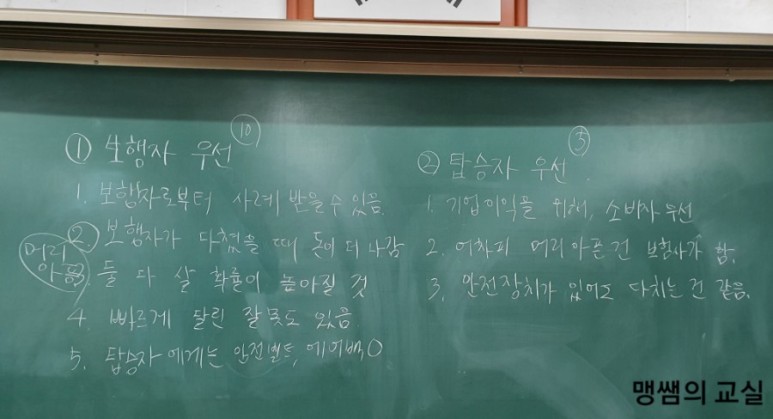 ① 보행자 우선 ⑩
1. 보행자로부터 사례 받을 수 있음.
2. 보행자가 다쳤을 때 돈이 더 나감
머리 아픔
3. 둘 다 살 확률이 높아질 것
4. 빠르게 달린 잘못도 있음
5. 탑승자에게는 안전벨트, 에어백 O
② 탑승자 우선 ③
1. 기업이익을 위해, 소비자 우선
2. 어차피 머리 아픈 건 보험사가 함.
3. 안전장치가 있어도 다치는 건 같음.
맹쌤의 교실